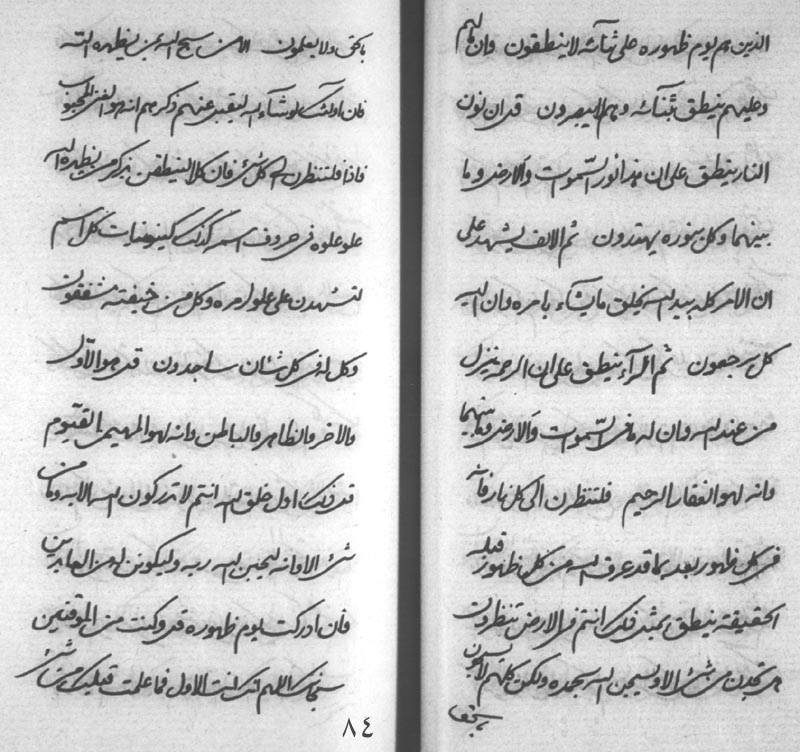 الذين هم يوم ظهوره على ثنائه لا ينطقون وان كلهم
وعليهم ينطق بثنائه وهم لا يبصرون قد ان نون
النار ينطق على ان هذا نور السموات والارض وما
بينهما وكل بنوره يهتدون ثم الالف يشهد على
ان الامر كله بيد الله يخلق ما يشاء بامره وان اليه
كل يرجعون ثم الراء ينطق على ان الرحمة ينزل
من عند الله وان له ما في السموات والارض وما بينهما
وانه لهو الغفار الرحيم فلتنظرن الى كل نار فانه
في كل ظهور بعد بما قد عرف الله من كل ظهور قبله
الحقيقة ينطق بمثل ذلك انتم في الارض تنظرون
من شيء الا ويسبحن الله بحمده ولكن كلهم
بالحق ولا يعلمون الا من سبح الله بمن يظهره الله
فان اولئك لو شاء الله ليقبل عنهم ذكرهم انه هو الغني المحبوب
فاذا فلتنظرن الى كل شيء فان كلا لينطقن بذكر من يظهره الله
علو علوه في حروف اسمه كذلك كينونيات كل اسم
لتشهدن على علو امره وكل من خيفته مشفقون
وكل له في كل شان ساجدون قل هو الاول
والاخر والظاهر والباطن وانه لهو المهيمن القيوم
قل ذلك اول خلق الله انتم لا تدركون الله الا به وما من
شيء الا وانه ليحبن الله ربه وليكونن له من العابدين
فان ادركت يوم ظهوره قل وكنت من الموقنين
سبحانك اللهم انك انت الاول فما علمت قبلك من شيء
٨٤